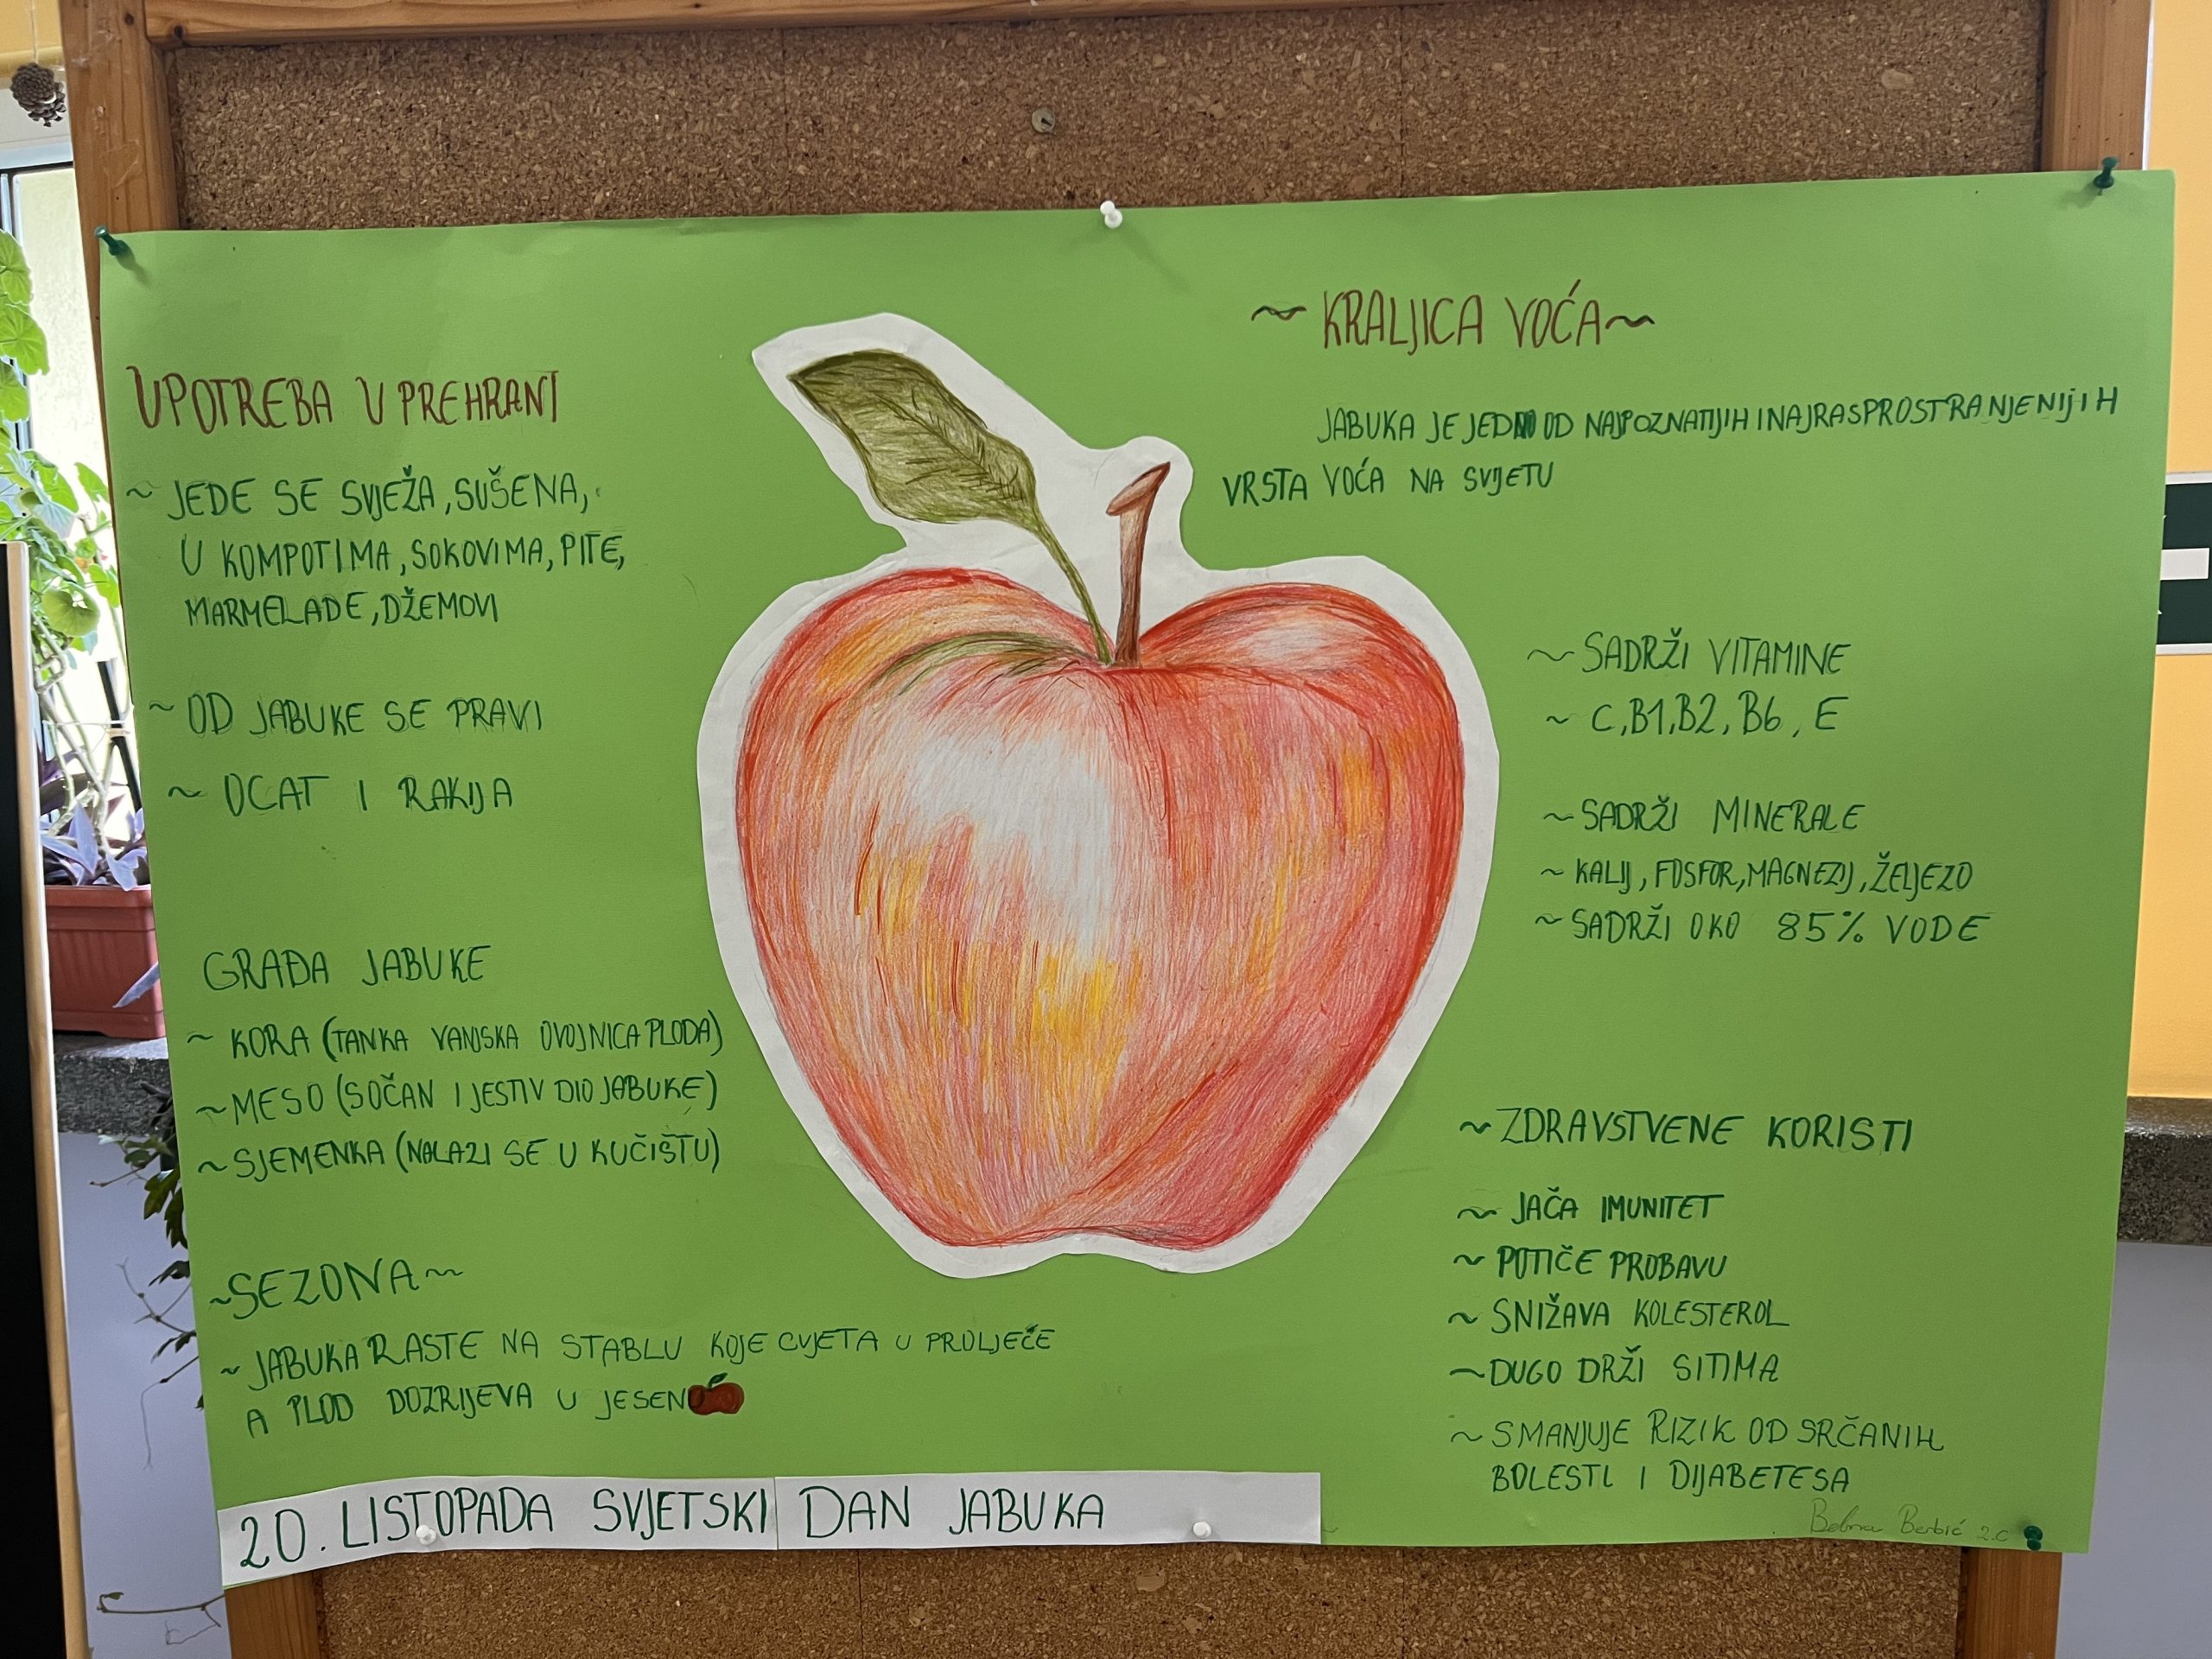 ~ KRALJICA VOĆA ~
JABUKA JE JEDNA OD NAJPOZNATIJIH I NAJRASPROSTRANJENIJIH
VRSTA VOĆA NA SVIJETU
UPOTREBA U PREHRANI
~ JEDE SE SVJEŽA, SUŠENA,
U KOMPOTIMA, SOKOVIMA, PITE,
MARMELADE, DŽEMOVI
~ OD JABUKE SE PRAVI
~ OCAT I RAKIJA
GRAĐA JABUKE
~ KORA (TANKA VANJSKA OVOJNICA PLODA)
~ MESO (SOČAN I JESTIV DIO JABUKE)
~ SJEMENKA (NALAZI SE U KUČIŠTU)
~ SEZONA ~
~ JABUKA RASTE NA STABLU KOJE CVJETA U PROLJEČE
A PLOD DOZRIJEVA U JESEN
~ SADRŽI VITAMINE
~ C, B1, B2, B6, E
~ SADRŽI MINERALE
~ KALIJ, FOSFOR, MAGNEZIJ, ŽELJEZO
~ SADRŽI OKO 85% VODE
~ ZDRAVSTVENE KORISTI
~ JAČA IMUNITET
~ POTIČE PROBAVU
~ SNIŽAVA KOLESTEROL
~ DUGO DRŽI SITIMA
~ SMANJUJE RIZIK OD SRČANIH
BOLESTI I DIJABETESA
20. LISTOPADA SVJETSKI DAN JABUKA
2.c